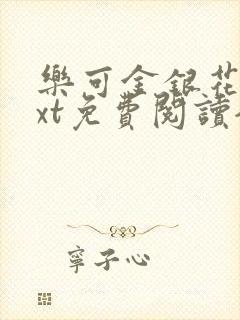 樂可金銀花
xt免費閱讀
寧子心